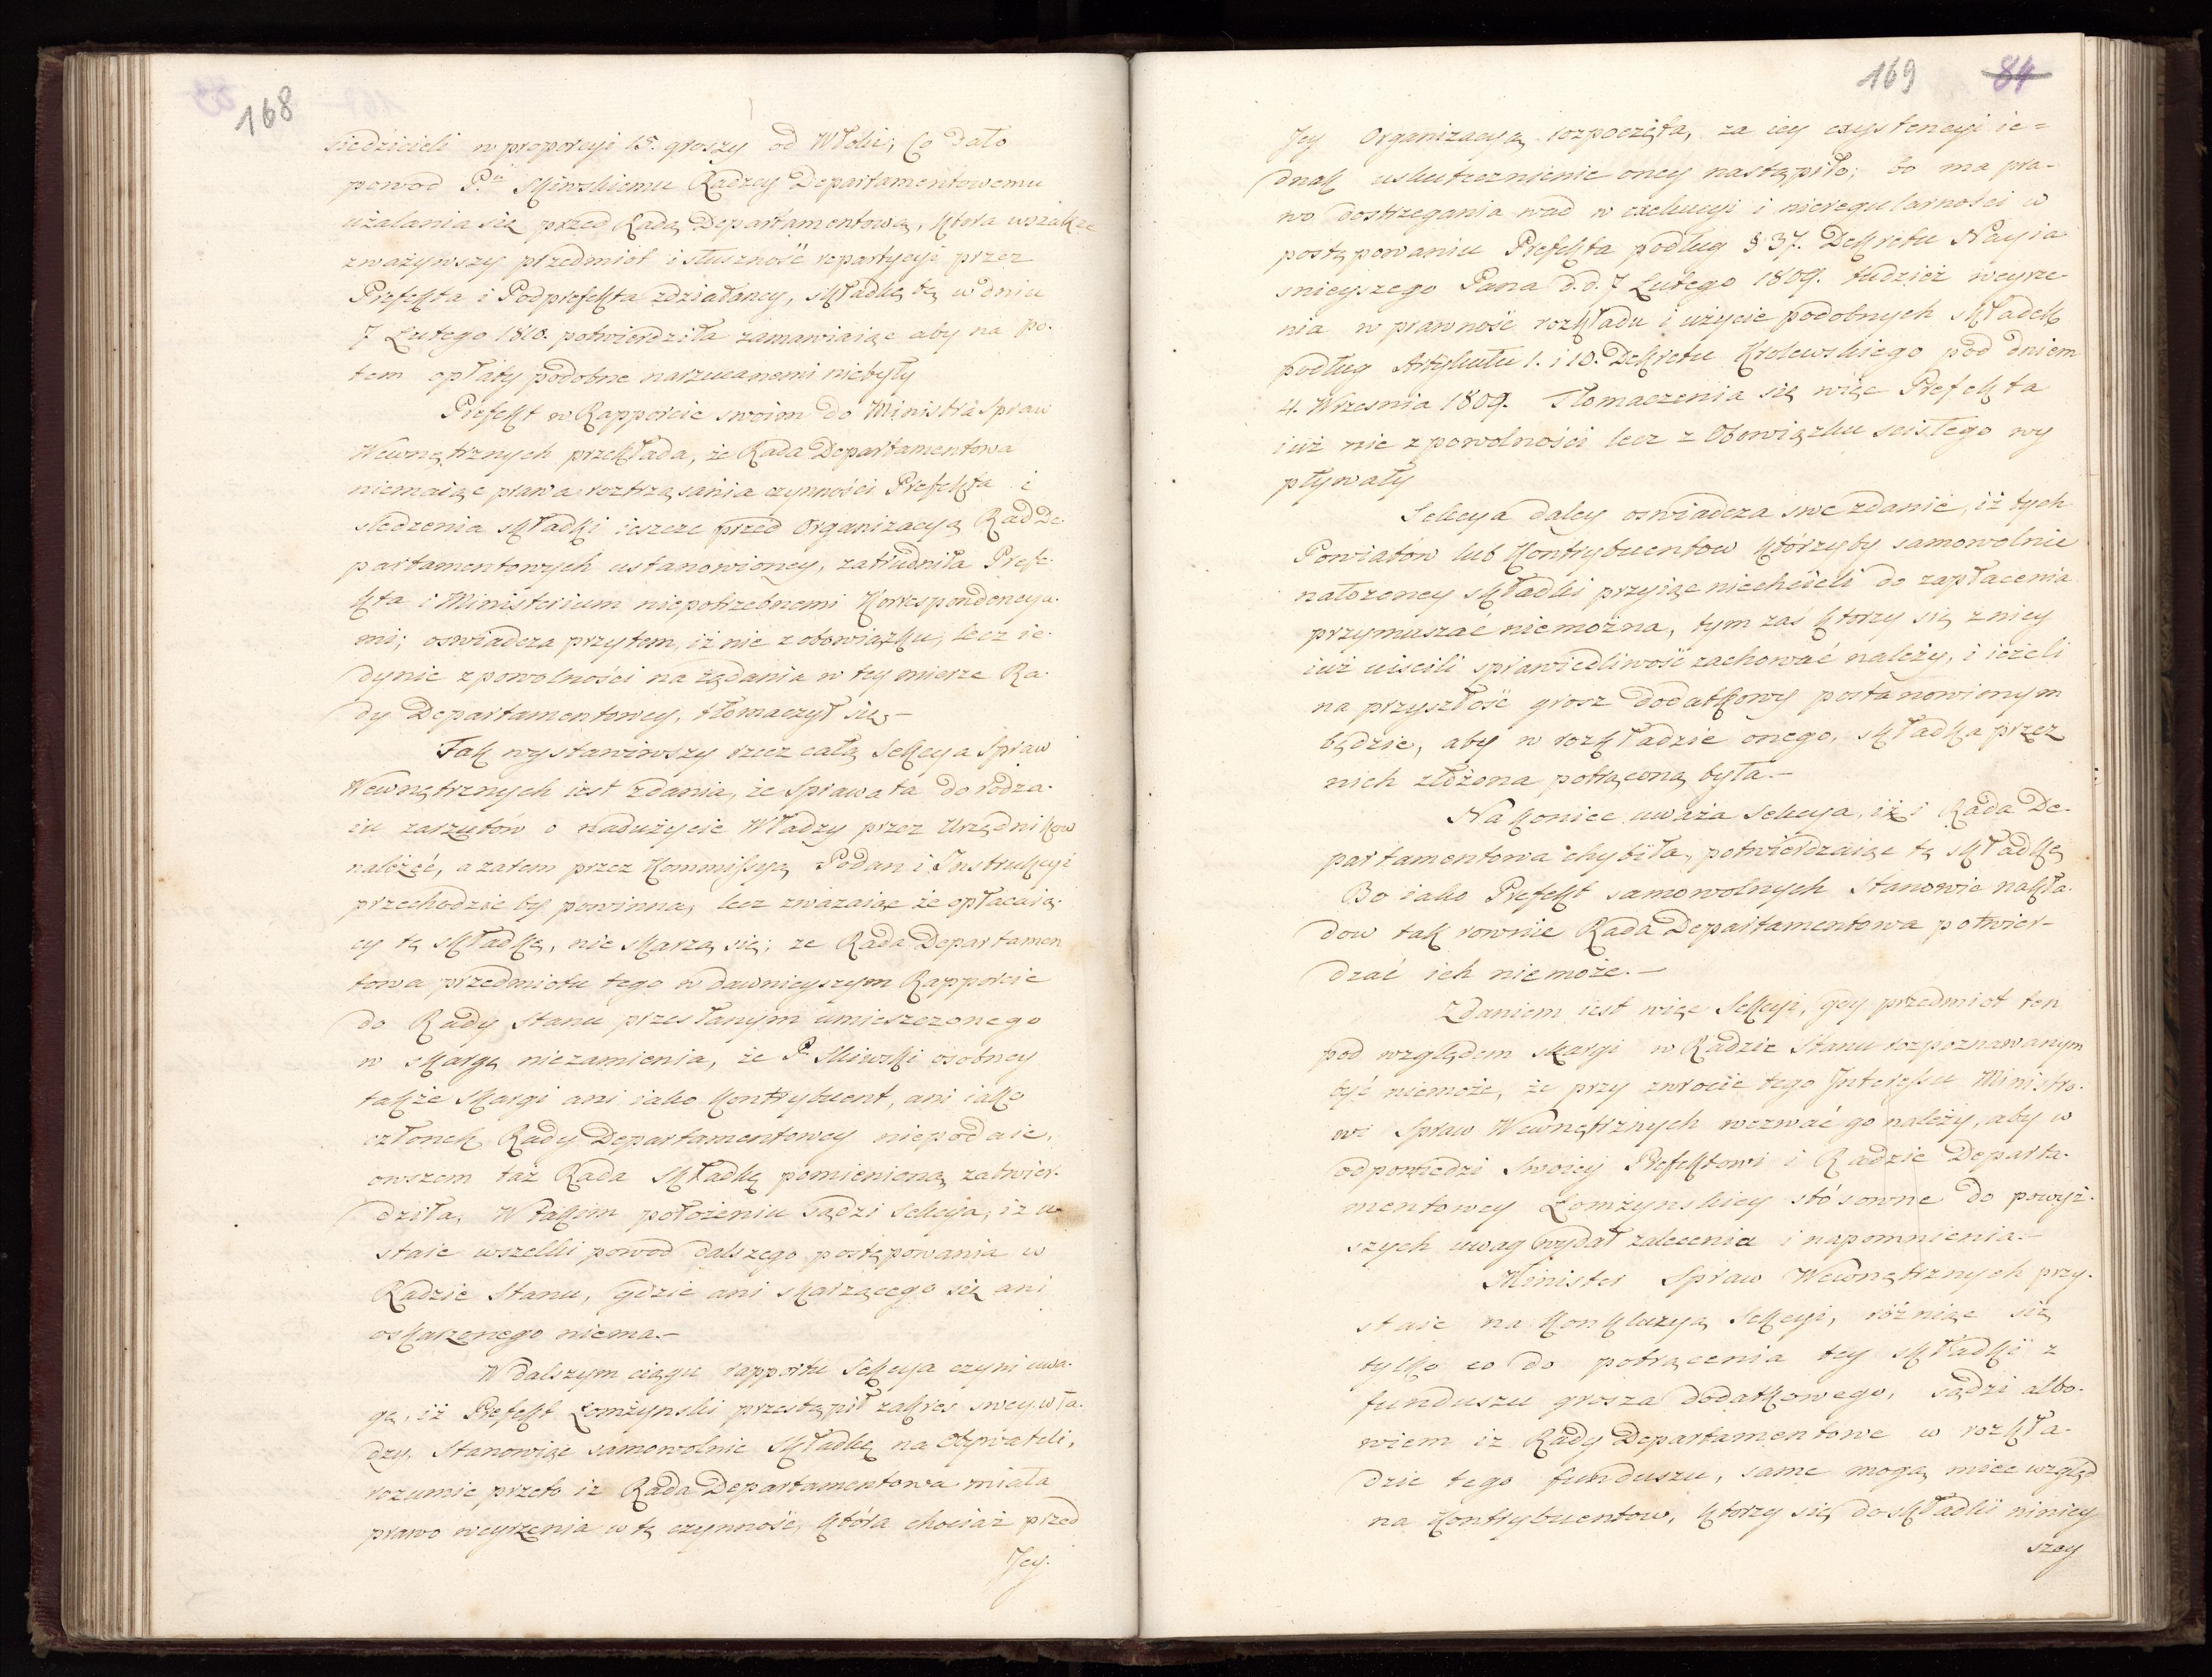 168
siedzicieli w proporcyi 15. groszy od Włoki; Co dało
powod P.u Skiwskiemu Radzcy Departamentowemu
użalania się przed Radą Departamentową, ktora wszakże
zważywszy przedmiot i słuszność repartycyi przez
Prefekta i Podprefekta zdziałaney, składkę tę w dniu
7 Lutego 1810. potwierdziła zamawiaiąc aby na po-
tem opłaty podobne narzucanemi niebyły
Prefekt w Rapporcie swoim do Ministra Spraw
Wewnętrznych przekłada, że Rada Departamentowa
niemaiąc prawa roztrząsania czynności Prefekta i
sledzenia składki ieszcze przed Organizacyą Rad De-
partamentowych ustanowioney, zatrudniła Prefe-
kta i Ministerium niepotrzebnemi Korrespondencya-
mi; oswiadcza przytem, iż nie z obowiązku, lecz ie-
dynie z powolności na żądania w tey mierze Ra-
dy Departamentowey, tłomaczył się.—
Tak wystawiwszy rzecz całą Sekcya Spraw
Wewnętrznych iest zdania, że Sprawa ta do rodza-
iu zarzutów o nadużycie Władzy przez Urzędnikow
należéć, a zatem przez Kommissyą Podan i Instrukcyi
przechodzić by powinna, lecz zważaiąc że opłacaią-
cy tę składkę, nie skarzą się; ze Rada Departamen
towa przedmiotu tego w dawnieyszym Rapporcie
do Rady Stanu przesłanym umieszczonego
w skargę niezamienia, że P. Skiwski osobney
także skargi ani iako Kontrybuent, ani iako
członek Rady Departamentowey niepodaie,
owszem taż Rada składkę pomienioną zatwier-
dziła, W takim położeniu sądzi Sekcya, iż u-
staie wszelki powod dalszego postępowania w
Radzie Stanu, gdzie ani skarzącego się ani
oskarzonego niema.—
W dalszym ciągu rapportu Sekcya czyni uwa-
gę, iż Prefekt Łomżynski przestąpił zakres swey wła-
dzy, Stanowiąc samowolnie składkę na Obywateli,
rozumie przeto iz Rada Departamentowa miała
prawo weyrzenia w tę czynność, która chociaż przed
Jey.
169 84
Jey Organizacyą rozpoczęta, za iey exystencyi ie=
dnak uskutecznienie oney nastąpiło; to ma pra-
wo dostrzegania wad w exekucyi i nieregularności w
postępowaniu Prefekta podług § 37. Dekretu Nayia
snieyszego Pana d. d. 7 Lutego 1809. tudzież weyrze-
nia w prawność rozkładu i użycie podobnych składek
podług Artykułu 1. i 10. Dekretu Krolewskiego pod dniem
4. Wrzesnia 1809. Tłomaczenia się więc Prefekta
iuż nie z powolności lecz z Obowiązku scisłego wy
pływały
Sekcya daley oswiadcza swe zdanie, iż tych
Powiatów lub Kontrybuentow którzyby samowolnie
nałozoney składki przyiąć niechcieli do zapłacenia
przymuszać niemożna, tym zaś ktorzy się z niey
iuż uiscili sprawiedliwość zachować należy, i ieżeli
na przyszłość grosz dodatkowy postanowionym
będzie, aby w rozkładzie onego, składka przez
nich złożona potrąconą była.—
Nakoniec uważa Sekcya, iż i Rada De-
partamentowa chybiła, potwierdzaiąc tę składkę
Bo iako Prefekt samowolnych Stanowic nakła-
dow tak rownie Rada Departamentowa potwier-
dzać ich niemoże.—
Zdaniem iest więc Sekcyi, gdy przedmiot ten
pod względem skargi w Radzie Stanu rozpoznawanym
być niemoże, że przy zwrocie tego Interessu Ministro-
wi Spraw Wewnętrznych wezwać go należy, aby w
odpowiedzi Swoiey Prefektowi i Radzie Departa-
mentowey Łomżynskiey stósowne do powyż-
szych uwag wydał zalecenia i napomnienia.—
Minister Spraw Wewnętrznych przy-
staie na Konkluzyą Sekcyi, różniąc się
tylko co do potrącenia tey składki z
funduszu grosza dodatkowego, sądzi albo-
wiem iz Rady Departamentowe w rozkła-
dzie tego funduszu, same mogą miec wzgląd
na Kontrybuentow, ktorzy się do składki niniey
szey